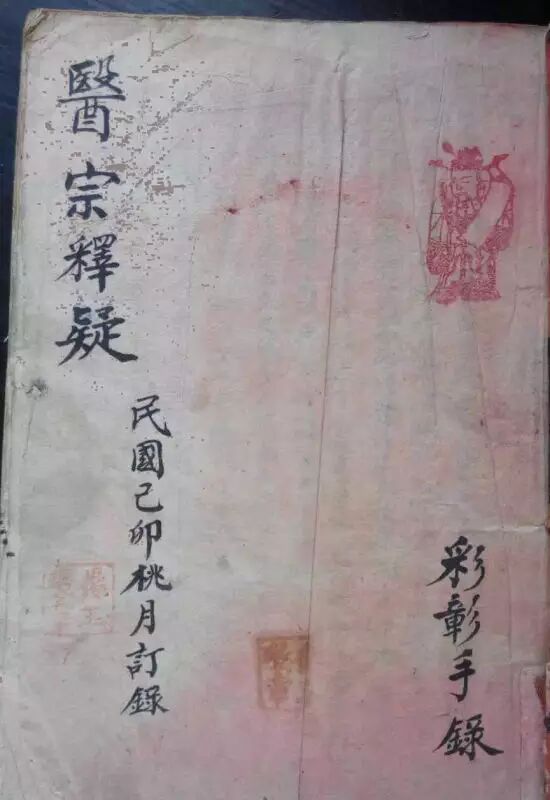 彩彰手錄
醫宗釋疑
民國己卯桃月訂錄